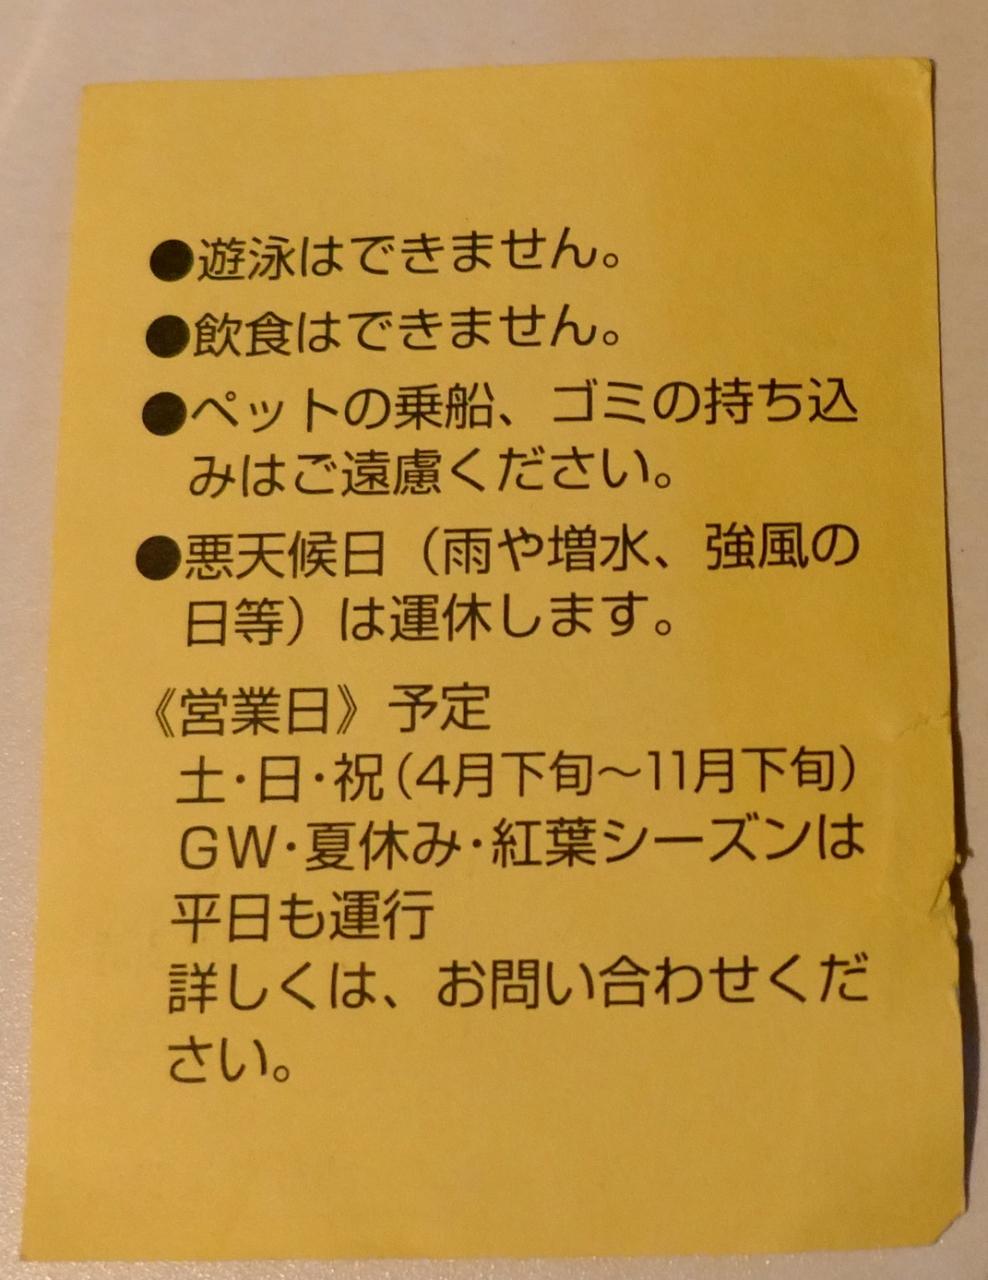 ●遊泳はできません。
●飲食はできません。
●ペットの乗船、ゴミの持ち込
みはご遠慮ください。
●悪天候日（雨や増水、強風の
日等）は運休します。
《営業日》予定
土・日・祝（4月下旬〜11月下旬）
GW・夏休み・紅葉シーズンは
平日も運行
詳しくは、お問い合わせくだ
さい。